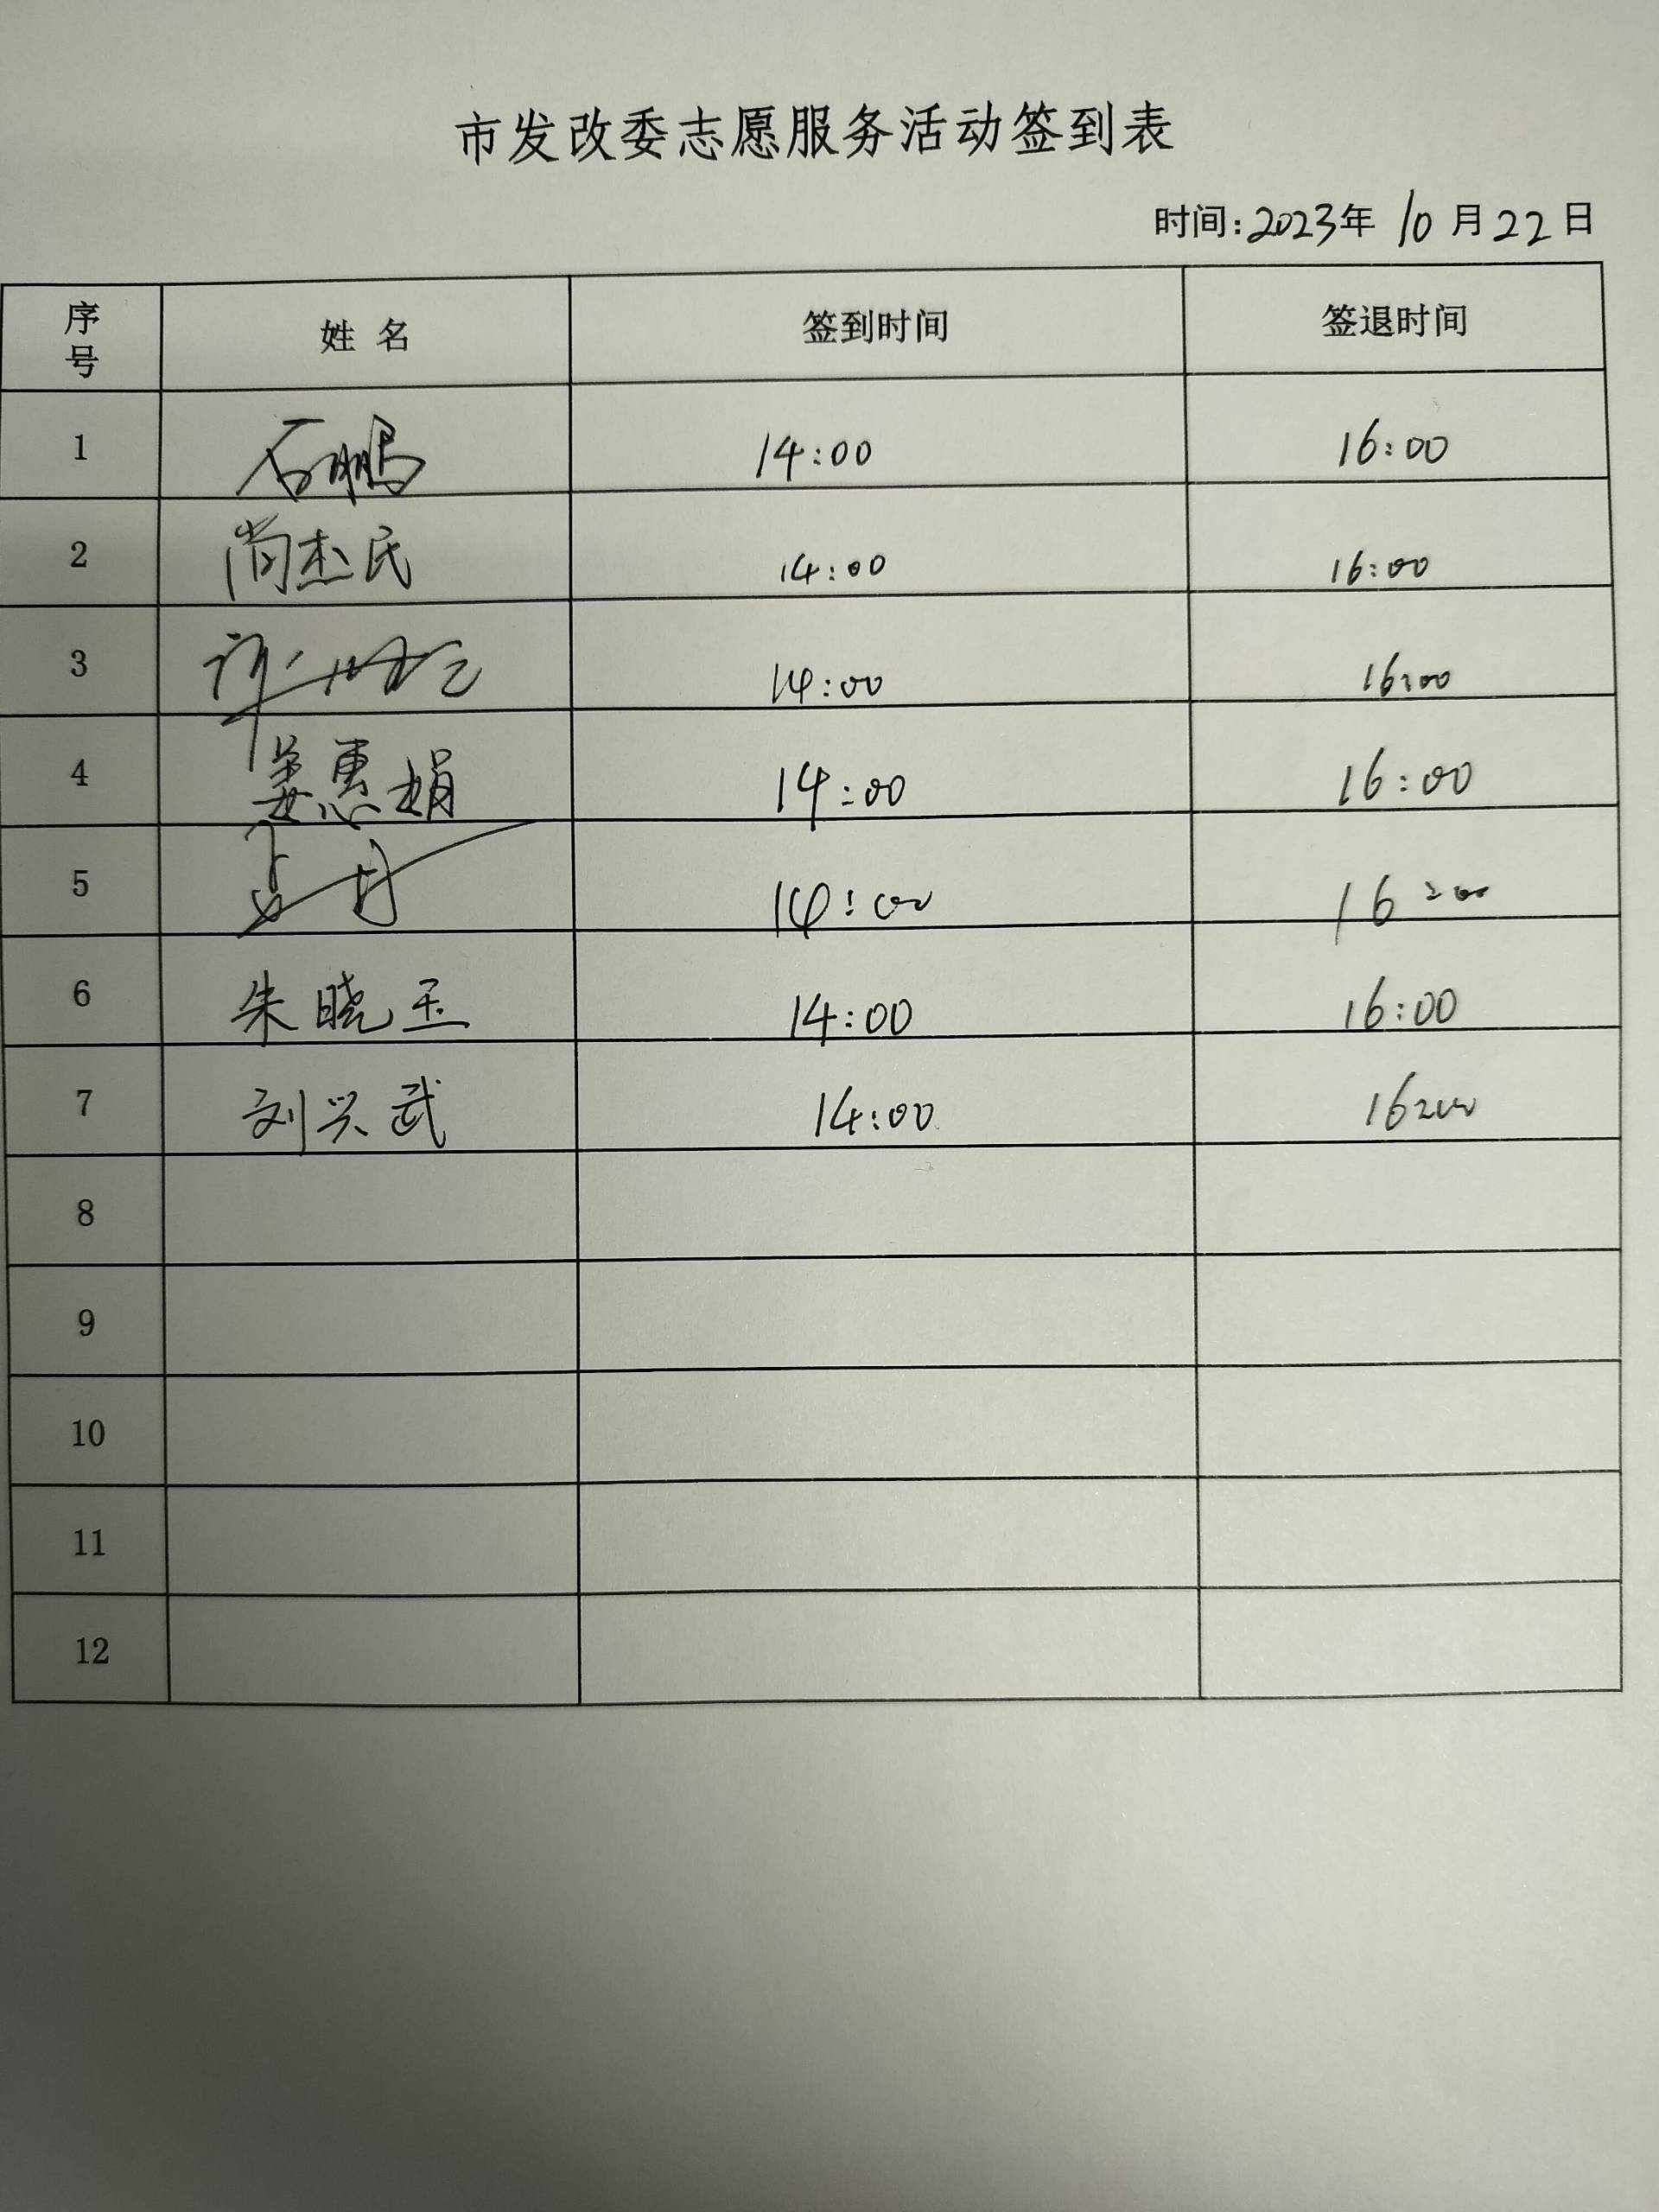 市发改委志愿服务活动签到表
时间:2023年 10月22日
序号 姓 名 签到时间 签退时间
1 石鹏 14:00 16:00
2 尚杰民 14:00 16:00
3 14:00 16:00
4 姜惠娟 14:00 16:00
5 14:00 16:00
6 朱晓玉 14:00 16:00
7 刘兴武 14:00 16:00
8
9
10
11
12